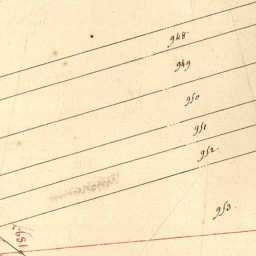 948
949
950
951
952
953
159